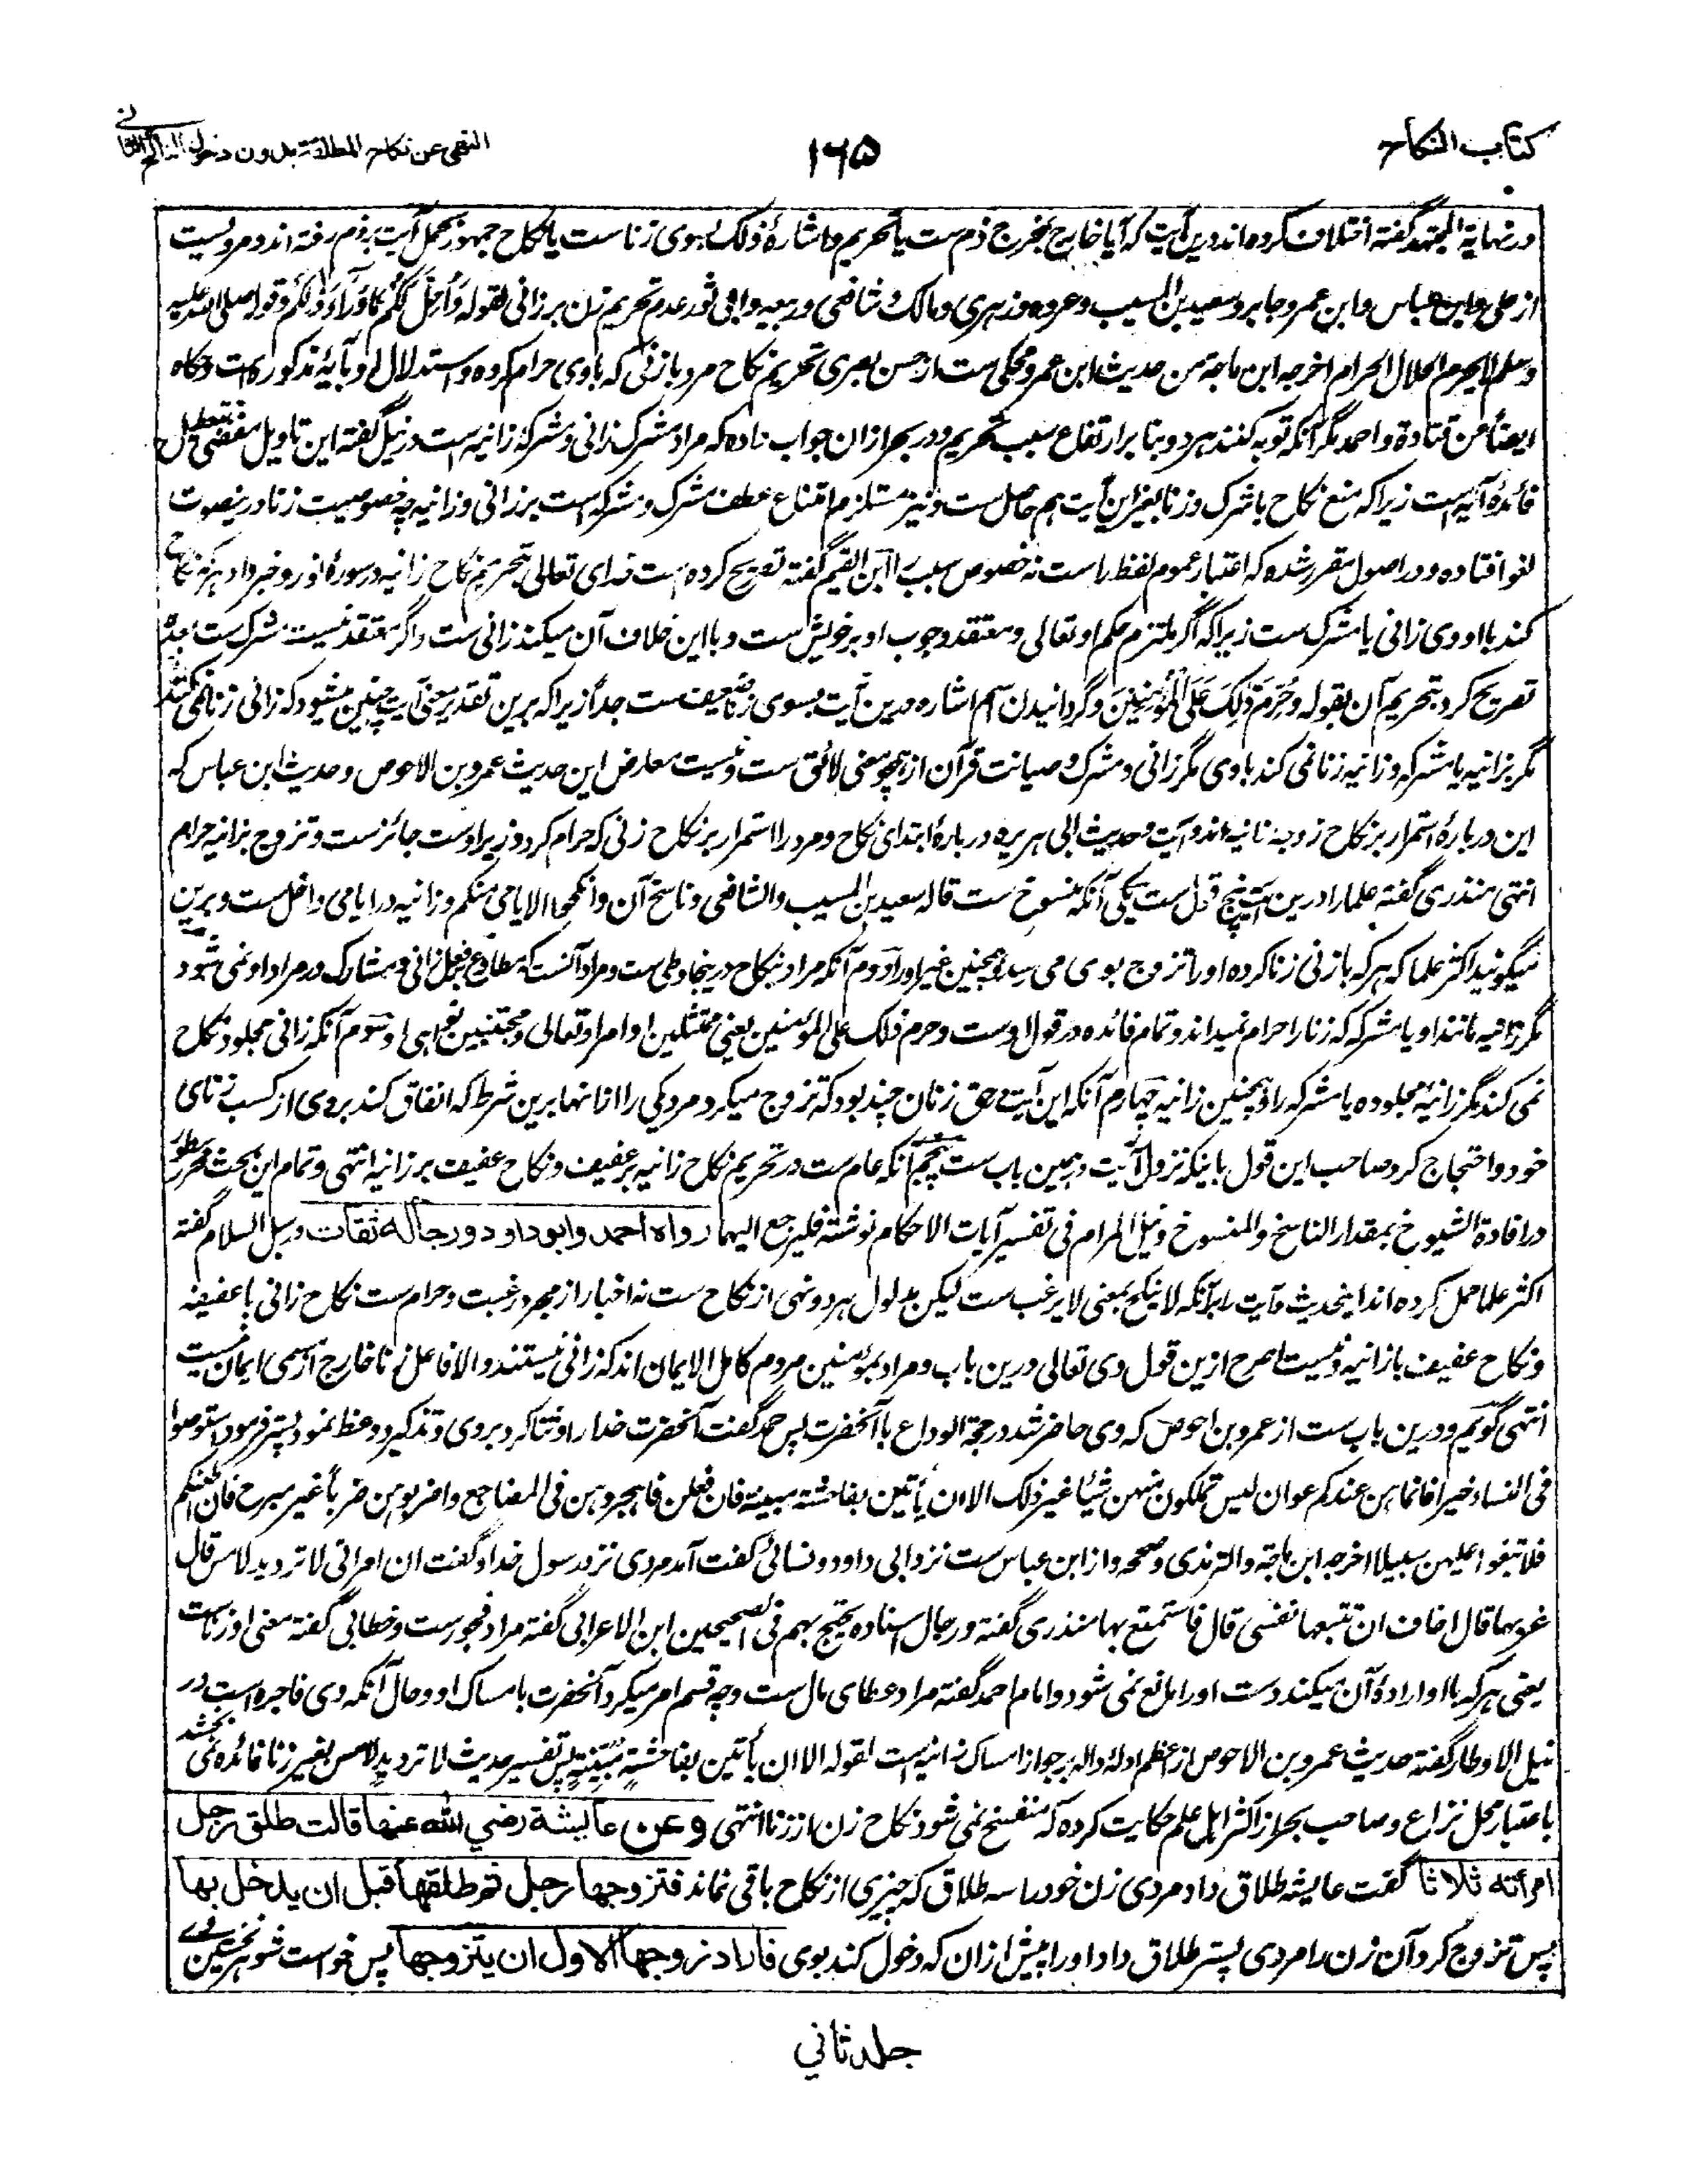 کتاب النکاح
۱۶۵
النهی عن نکاح المطلقة بدون دخول الناکح الثانی
در نهایة المجتهد گفته اختلاف کرده اند درین آیت که آیا خارج بمخرج ذم ست یا تحریم و اشارهٔ ذلک بسوی زناست یا نکاح جمهور بحمل آیت بر ذم رفته اند و مرویست
از علی و ابن عباس و ابن عمر و جابر و سعید بن المسیب و عروه و زهری و مالک و شافعی و ربیعه و ابی ثور عدم تحریم زن بر زانی لقوله وَأُحِلَّ لَکُم مَّا وَرَآءَ ذٰلِکُم و قوله صلی الله علیه
وسلم لا یحرم الحلال الحرام اخرجه ابن ماجة من حدیث ابن عمر و محکی ست از حسن بصری تحریم نکاح مرد بازنی که باوی حرام کرده و استدلال او بآیهٔ مذکور ست و حکاه
ایضا عن قتادة و احمد مگر آنکه توبه کنند هر دو بنا بر ارتفاع سبب تحریم و در بحر ازان جواب داده که مراد مشرک زانی و مشرکه زانیه است در نیل گفته این تاویل مفضی بتعطیل
فائدهٔ آیه است زیراکه منع نکاح با شرک و زنا بغیر این آیت هم حاصل ست و نیز مستلزم امتناع عطف مشرک و مشرکه است بر زانی و زانیه چه خصوصیت زنا درینصورت
لغو افتاده و در اصول مقرر شده که اعتبار عموم لفظ راست نه خصوص سبب را ابن القیم گفته تصریح کرده است خدای تعالی بتحریم نکاح زانیه در سورهٔ نور و خبر داد هر که نکاح
کند با او وی زانی یا مشرک ست زیراکه اگر ملتزم حکم او تعالی و معتقد وجوب او بر خویش ست و با این خلاف آن میکند زانی ست و اگر معتقد نیست مشرک ست بعده
تصریح کرد بتحریم آن بقوله وَحُرِّمَ ذٰلِکَ عَلَی الْمُؤْمِنِینَ و گردانیدن اسم اشاره درین آیت بسوی زنا ضعیف ست جدا زیراکه برین تقدیر معنی آیت چنین میشود که زانی زنا نمی کند
مگر بزانیه یا مشرکه و زانیه زنا نمی کند باوی مگر زانی و مشرک و صیانت قرآن از همچو معنی لائق ست و نیست معارض این حدیث عمرو بن الاحوص و حدیث ابن عباس که
این دربارهٔ استمرار بر نکاح زوجه زانیه اند و آیت و حدیث ابی هریره دربارهٔ ابتدای نکاح و مرد را استمرار بر نکاح زنی که حرام کرد و زیر اوست جائزست و تزوج بزانیه حرام
انتهی منذری گفته علما را درین آیت پنج قول ست یکی آنکه منسوخ ست قاله سعید بن المسیب والشافعی و ناسخ آن وانکحوا الایامی منکم و زانیه در ایامی داخل ست و برین
میگویند اکثر علما که هر که بازنی زنا کرده او را تزوج بوی می رسد و همچنین غیر او را دوم آنکه مراد بنکاح درینجا وطی ست و مراد آنست که مطاوع بر فعل زانی و مشارک در مراد او نمی شود
مگر زانیه مانند او یا مشرکه که زنا را حرام نمیداند و تمام فائده در قول اوست وحرم ذلک علی المؤمنین یعنی ممتثلین اوامر او تعالی و مجتنبین نواهی او سوم آنکه زانی مجلود نکاح
نمی کند مگر زانیهٔ مجلوده یا مشرکه را و همچنین زانیه چهارم آنکه این آیت در حق زنان چند بود که تزوج میکرد مرد یکی را ازانها برین شرط که انفاق کند بروی از کسب زنای
خود و احتجاج کرد صاحب این قول باینکه نزول آیت در همین باب ست پنجم آنکه عام ست در تحریم نکاح زانیه بر عفیف و نکاح عفیف بر زانیه انتهی و تمام این بحث محرر سطور
در افادة الشیوخ بمقدار الناسخ والمنسوخ و نیل المرام فی تفسیر آیات الاحکام نوشته فلیرجع الیهما رواه احمد وابو داود ورجاله ثقات و در سبل السلام گفته
اکثر علما حمل کرده اند اینحدیث و آیت را برآنکه لا ینکح بمعنی لا یرغب ست لیکن مدلول هر دو نهی از نکاح ست نه اخبار از مجرد رغبت و حرام ست نکاح زانی با عفیفه
و نکاح عفیف با زانیه و نیست اصرح ازین قول وی تعالی درین باب و مراد بمؤمنین مردم کامل الایمان اند که زانی نیستند والا فاعل زنا خارج از مسمی ایمان نیست
انتهی گویم و درین باب ست از عمرو بن احوص که وی حاضر شد در حجة الوداع با آنحضرت پس حمد گفت آنحضرت خدا را و ثنا کرد بروی و تذکیر و وعظ نمود پستر فرمود استوصوا
فی النساء خیرا فانما هن عندکم عوان لیس تملکون منهن شیئا غیر ذلک الا ان یأتین بفاحشة مبینة فان فعلن فاهجروهن فی المضاجع واضربوهن ضرباً غیر مبرح فان اطعنکم
فلا تبغوا علیهن سبیلا اخرجه ابن ماجة والترمذی وصححه و از ابن عباس ست نزد ابی داود و نسائی گفت آمد مردی نزد رسول خدا و گفت ان امراتی لا ترد ید لامس قال
غربها قال اخاف ان تتبعها نفسی قال فاستمتع بها منذری گفته ورجال اسناده یحتج بهم فی الصحیحین ابن الاعرابی گفته مراد فجورست و خطابی گفته معنی او زناست
یعنی هر که با او ارادهٔ آن میکند دست او را مانع نمی شود و امام احمد گفته مراد عطای مال ست و چه قسم امر میکرد آنحضرت بامساک او و حال آنکه وی فاجره است و در
نیل الاوطار گفته حدیث عمرو بن الاحوص از اعظم ادلهٔ داله بر جواز امساک زانیه است لقوله الا ان یأتین بفاحشةٍ مُبَیِّنَةٍ پس تفسیر حدیث لا ترد ید لامس بغیر زنا فائده نمی بخشد
باعتبار محل نزاع و صاحب بحر از اکثر اهل علم حکایت کرده که منفسخ نمی شود نکاح زن از زنا انتهی وعن عایشة رضی الله عنها قالت طلق رجل
امرأته ثلاثا گفت عایشه طلاق داد مردی زن خود را سه طلاق که چیزی از نکاح باقی نماند فتزوجها رجل ثم طلقها قبل ان یدخل بها
پس تزوج کرد آن زن را مردی پستر طلاق داد او را پیش ازان که دخول کند بوی فاراد زوجها الاول ان یتزوجها پس خواست شوهر نخستین وے
جلد ثانی